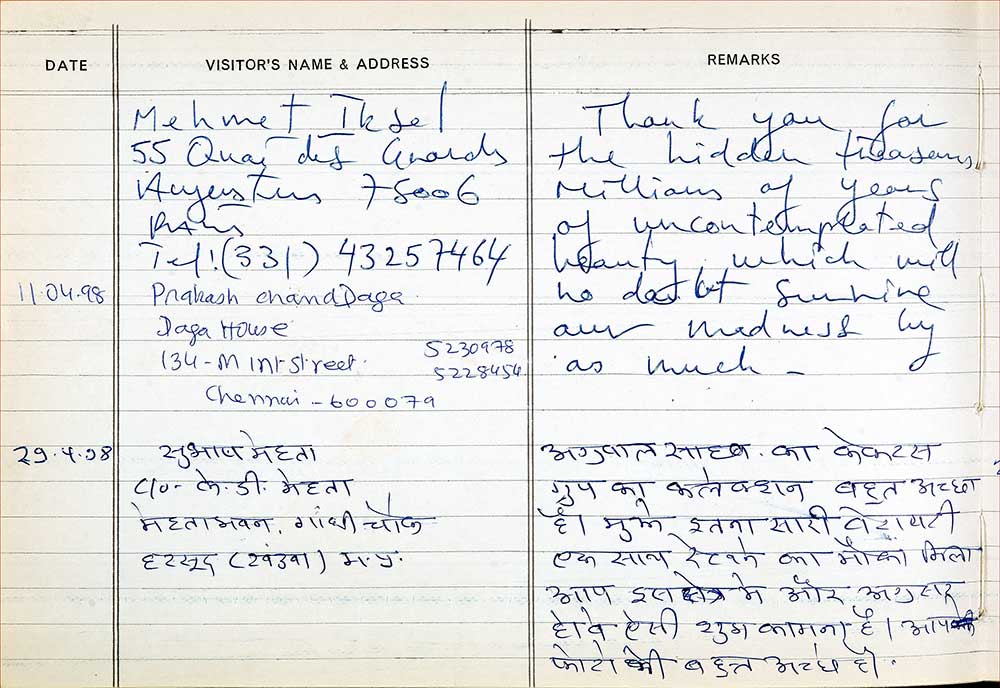 DATE
VISITOR'S NAME & ADDRESS
REMARKS
Mehmet Iksel
55 Quai des Grands
Augustins 75006
PARIS
Tel: (331) 43257464
Thank you for
the hidden treasures
Millions of years
of uncontemplated
beauty which will
no doubt survive
our madness by
as much -
11.04.98
Prakash chand Daga
Daga House
134-M int street.
5230978
5228454
Chennai - 600079
29.4.98
सुभाष मेहता
C/o- के.डी. मेहता
मेहता भवन, गांधी चौक
हरसूद (खंडवा) म.प्र.
अग्रवाल साहब. का केकटस
ग्रुप का कलेक्शन बहुत अच्छा
है। मुझे इतना सारी वेरायटी
एक साथ देखने का मौका मिला
आप इस क्षेत्र मे और अग्रसर
होवे ऐसी शुभ कामना है। आपकी
फोटो भी बहुत अच्छी है।